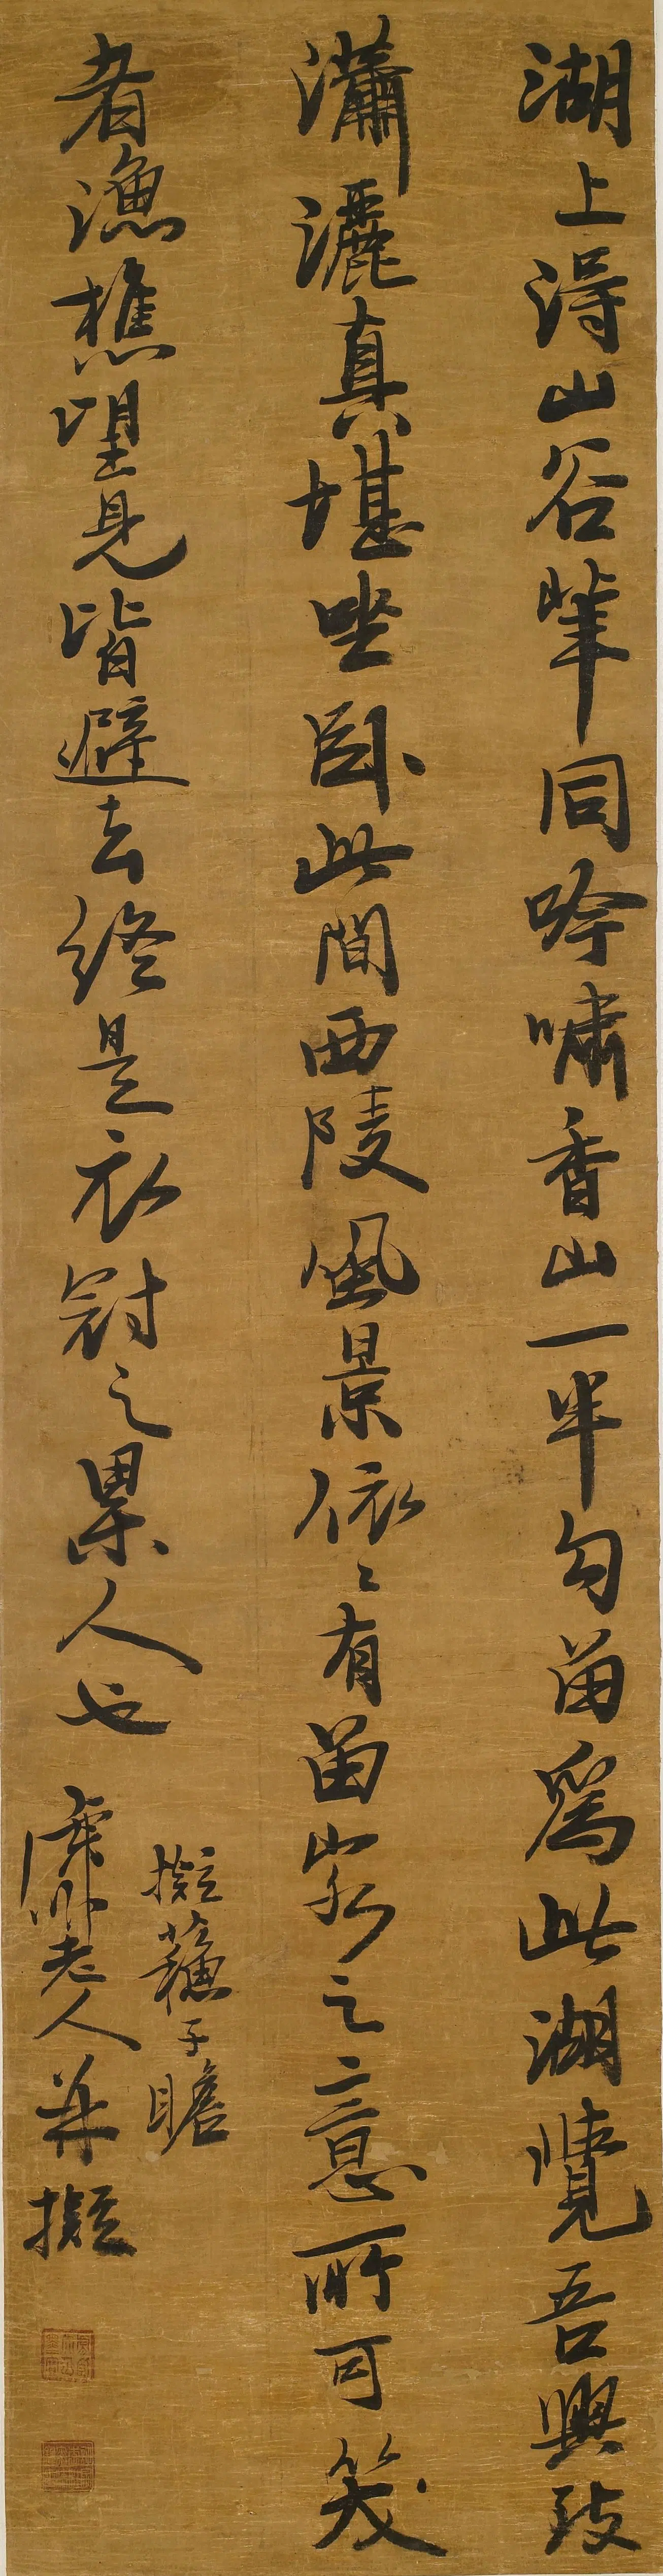 湖上得山谷輩同吟嘯香山一半勾留為此湖覺吾興致
瀟灑真堪坐臥此間西陵風景依〻有留家之意所可笑
者漁樵望見皆避去終是衣冠之累人也
擬蘇子瞻
老人并擬